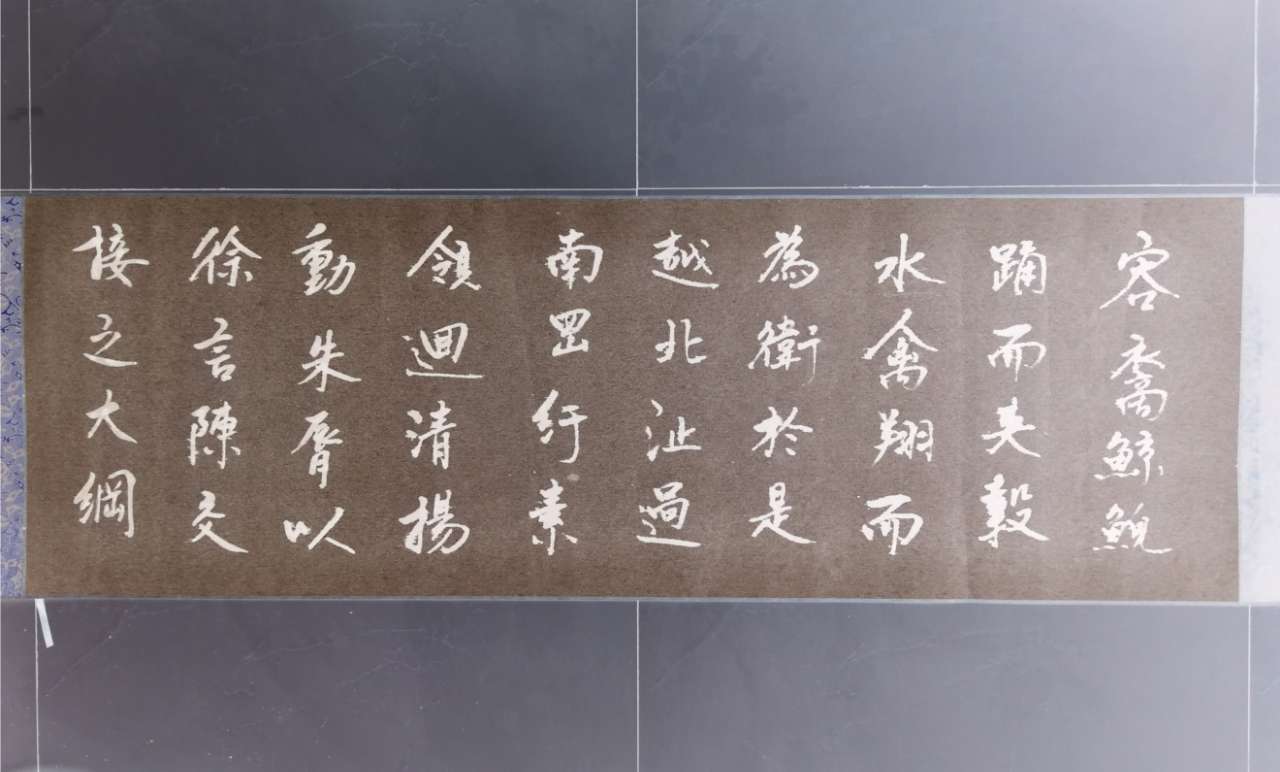 容裔鯨鯢
踊而夹轂
水禽翔而
為衛於是
越北沚過
南岡紆素
領迴清揚
動朱脣以
徐言陳交
接之大綱